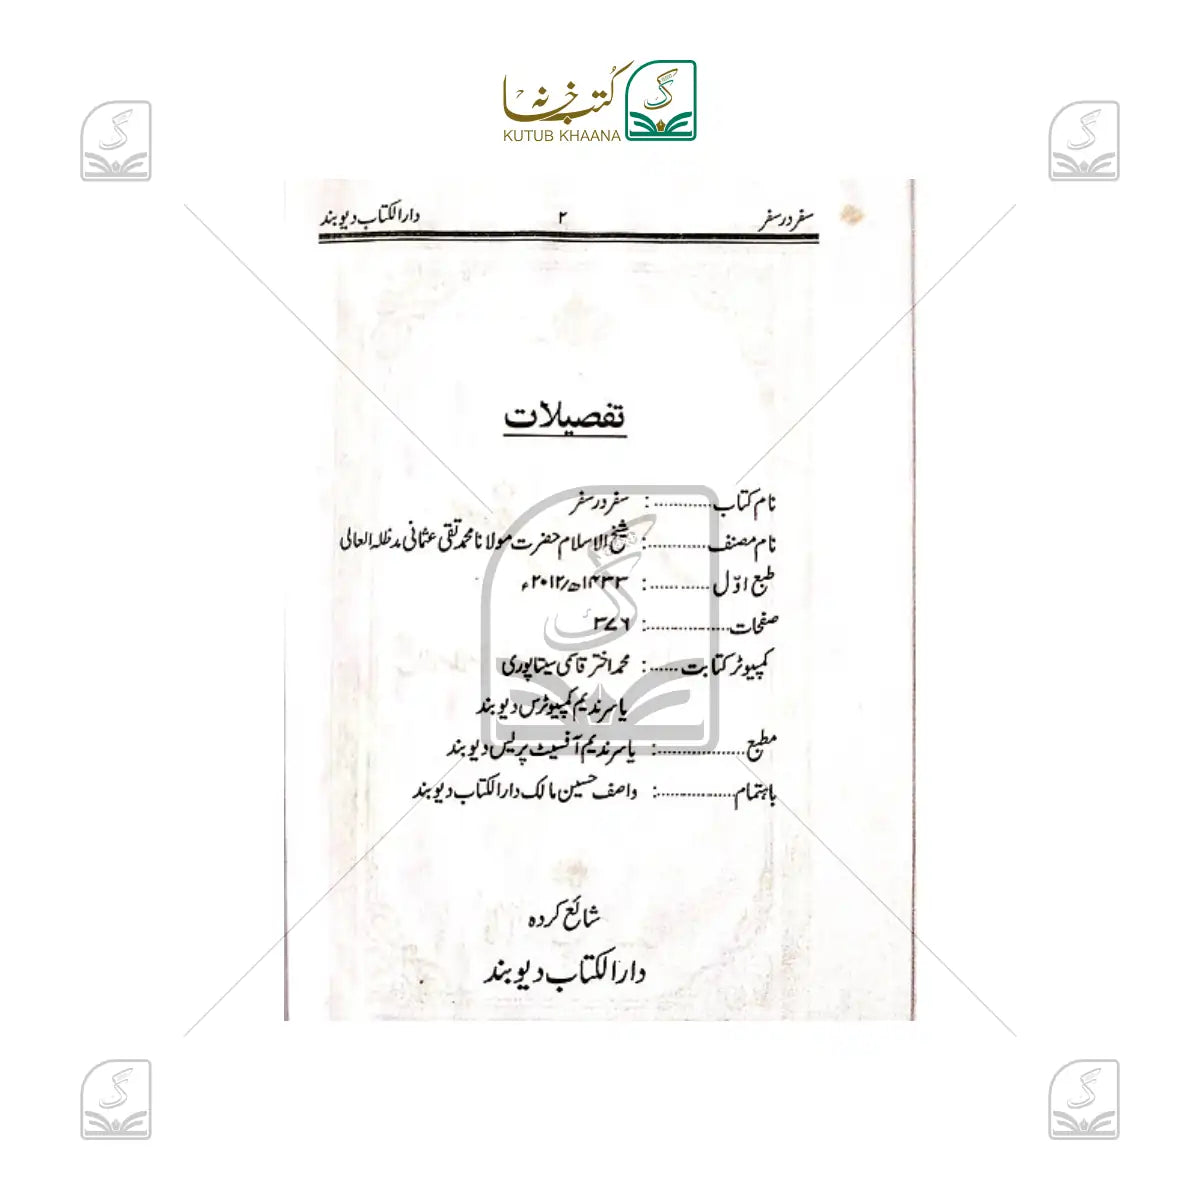 کتب خانہ
KUTUB KHAANA
سفر در سفر ۲ دارالکتاب دیوبند
تفصیلات
نام کتاب ............ : سفر در سفر
نام مصنف ............ : شیخ الاسلام حضرت مولانا محمد تقی عثمانی مدظلہ العالی
طبع اوّل ............ : ۱۴۳۳ھ/۲۰۱۲ء
صفحات ................ : ۳۷۶
کمپیوٹر کتابت ...... : محمد اختر قاسمی سیتاپوری
یاسر ندیم کمپیوٹرس دیوبند
مطبع .................. : یاسر ندیم آفسیٹ پریس دیوبند
باہتمام ................ : واصف حسین مالک دارالکتاب دیوبند
شائع کردہ
دارالکتاب دیوبند